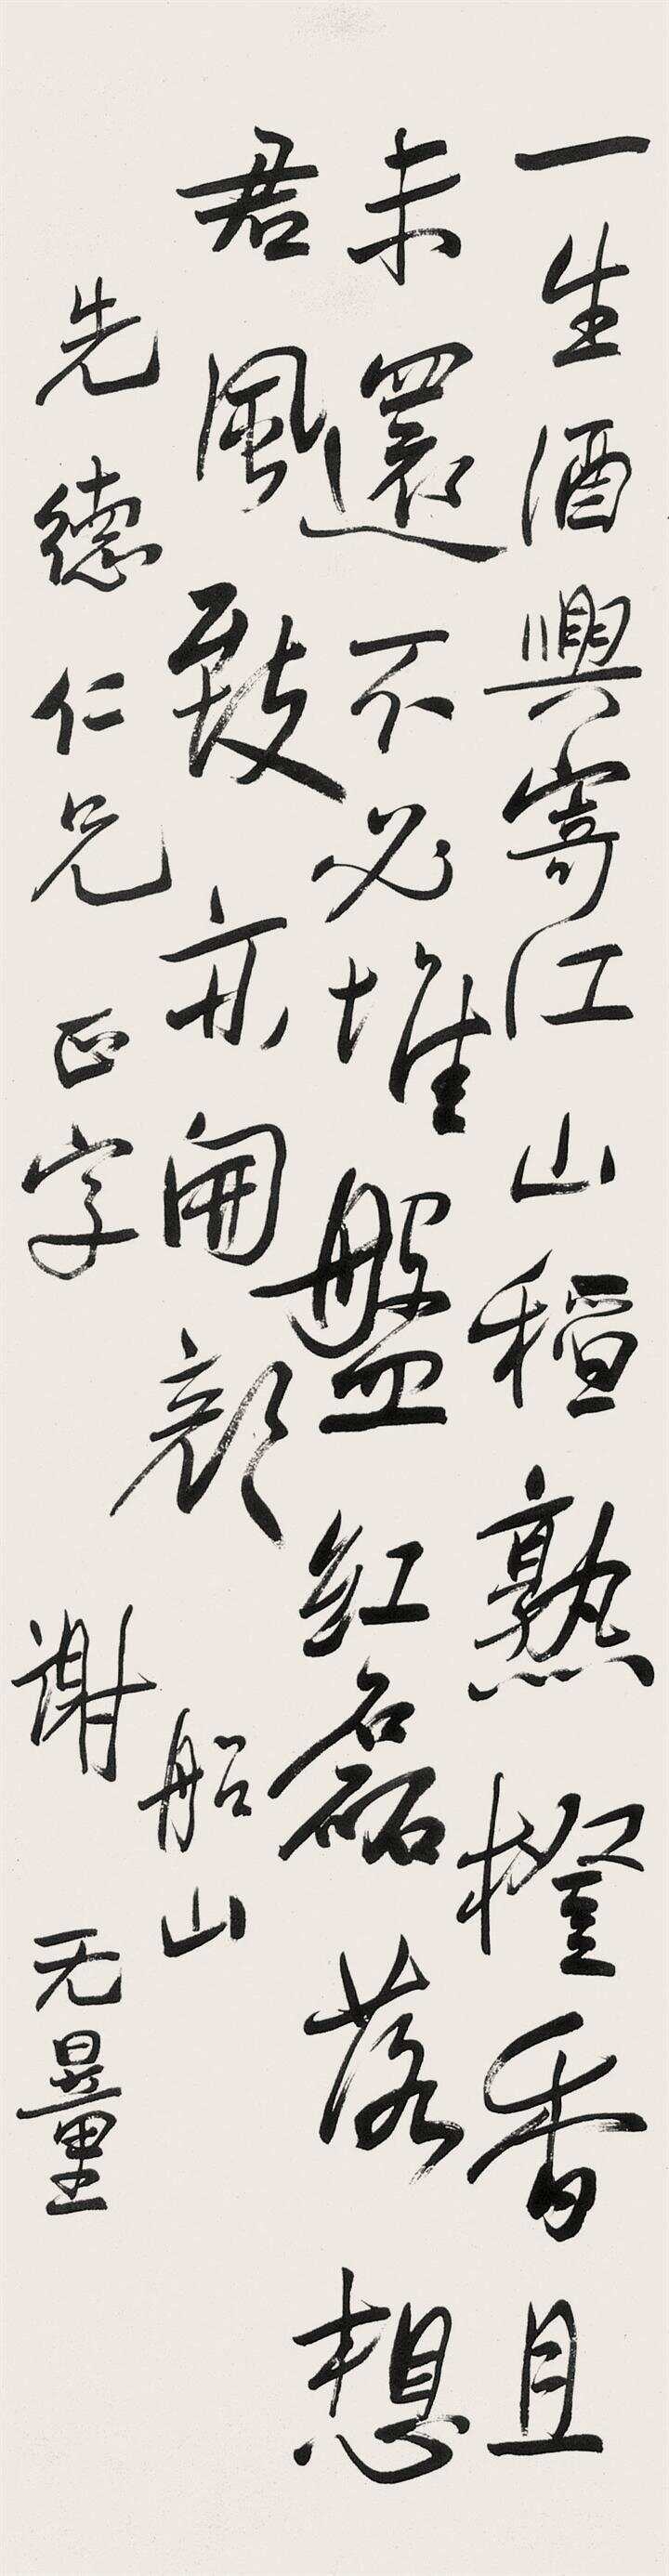 一生酒興寄江山稻熟橙香且
未還不必堆盤紅磊落想
君風致亦開顏
船山
先德仁兄正字
謝无量